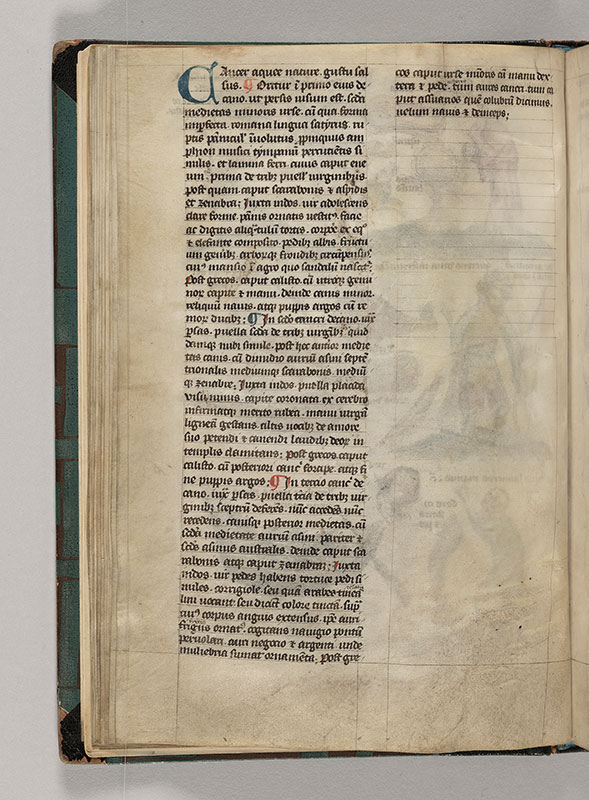 Cancer aquee nature. gustu sal
sus. Oritur ī primo eius de
cano. ut persis uisum est. sc̄da
medietas minoris urse. cū qua forma
imperfecta. romana lingua satyrus. ru
ptis pānicul' inuolutus. ꝓpinquus am
phion musici tympanum percutientis si
milis. et lamina ferri. cuius caput ene
um. prima de tribꝫ puell' uirginibꝫ.
post quam caput scarabonis & aspidis
et zenabrā; Iuxta indos. uir adolescens
clare forme. pānis ornatis uestitꝰ. facie
ac digitis aliq̄tulū tortis. corpore ex eqͦ
& elefante composito. pedibꝫ albis. fructu
um genibꝫ arborqꝫ frondibꝫ circūpensis.
cuiꝰ mansio ī agro quo sandalū nascit̄;
Post grecos. caput calisto. cū utroqꝫ genu
nor. capite & manu. deinde canis minor.
reliquū nauis. atqꝫ puppis argos cū re
mor ducibꝫ; In sc̄do cancri decano. iux̄
ꝑsas. puella sc̄da de tribꝫ uirgībꝫ quid
damqꝫ nubi simile. post hec antior medie
tas canis. cū dimidio aurium asini septē
trionalis mediumqꝫ scarabonis. mediū
qꝫ zenabre; Iuxta indos. puella placida
uisu, capite coronata ex cerebro
infirmatqꝫ merito rubea. manu uirgā
ligneā gestans. altis uocibꝫ de amore
suo petendi & canendi laudibꝫ deor in
templis clamitans; Post grecos. caput
calisto. cū posteriori canc̄ forcipe. atqꝫ fi
ne puppis argos; In tercio canc̄ de
cano. iux̄ ꝑsas. puella tc̄ia de tribꝫ uir
ginibꝫ sceptrū deferēs. nūc accedēs nūc
recedens. canisqꝫ posterior medietas. cū
sc̄da medietate aurium asini. pariter &
sc̄ds asinus australis. deinde caput sca
rabonis atqꝫ caput zenabrā; Iuxta
indos. uir pedes habens tortuce pedi si
miles. corrigiole. seu quā arabes
lini uocant. seu dicāt colore tinctā. supra
cuiꝰ corpus anguis extensus. ipse auri
frigiis ornatꝰ. cogitans nauigio pontū
peruolare. auri negocio & argenti. unde
muliebria sumat ornamēta; Post gre
cos caput urse mīoris cū manu dex
tera & pede. tum auces cancri. tum ca
put assuarios quē colubrū dicimus.
uelum nauis & deinceps;